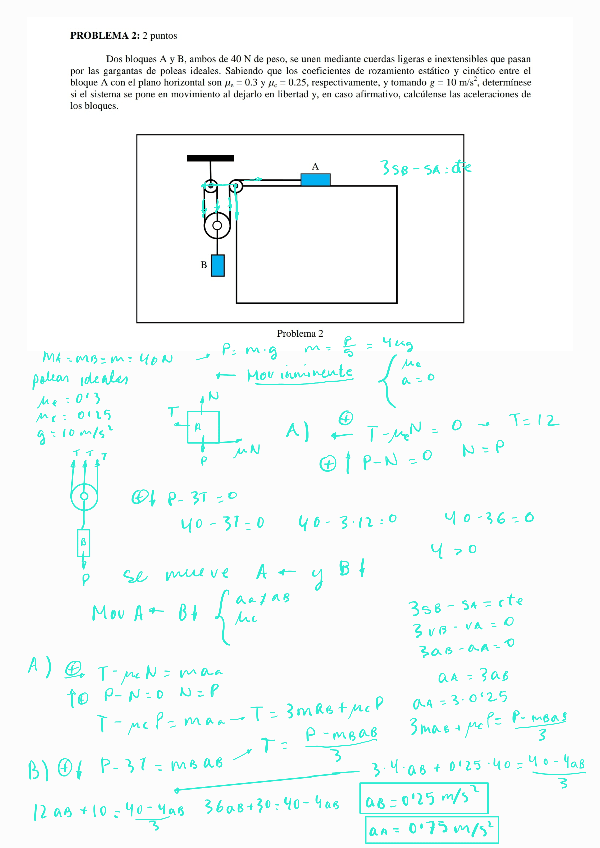 PROBLEMA 2: 2 puntos
Dos bloques A y B, ambos de 40 N de peso, se unen mediante cuerdas ligeras e inextensibles que pasan
por las gargantas de poleas ideales. Sabiendo que los coeficientes de rozamiento estático y cinético entre el
bloque A con el plano horizontal son μe = 0.3 y μc = 0.25, respectivamente, y tomando g = 10 m/s², determínese
si el sistema se pone en movimiento al dejarlo en libertad y, en caso afirmativo, calcúlense las aceleraciones de
los bloques.
A
3SB - SA = cte
B
Problema 2
MA = MB = m = 40N → P = m·g m = P/g = 4kg
poleas ideales ← Mov inminente { μe
a = 0
μe = 0'3
μc = 0'25
g = 10 m/s²
N
T A μN
P
A) ⊕ ← T - μeN = 0 → T = 12
⊕↑ P - N = 0 N = P
T T T
B
P
⊕↓ P - 3T = 0
40 - 3T = 0 40 - 3·12 = 0 40 - 36 = 0
4 > 0
Se mueve A ← y B↓
Mov A ← B↓ { aA ≠ aB
μc
3SB - SA = cte
3vB - vA = 0
3aB - aA = 0
aA = 3aB
aA = 3·0'25
A) ⊕ T - μcN = maA
↑⊕ P - N = 0 N = P
T - μcP = maA → T = 3maB + μcP
3maB + μcP = P - mBaB/3
B) ⊕↓ P - 3T = mBaB → T = P - mBaB/3
3·4·aB + 0'25·40 = 40 - 4aB/3
12aB + 10 = 40 - 4aB/3 36aB + 30 = 40 - 4aB aB = 0'25 m/s²
aA = 0'75 m/s²